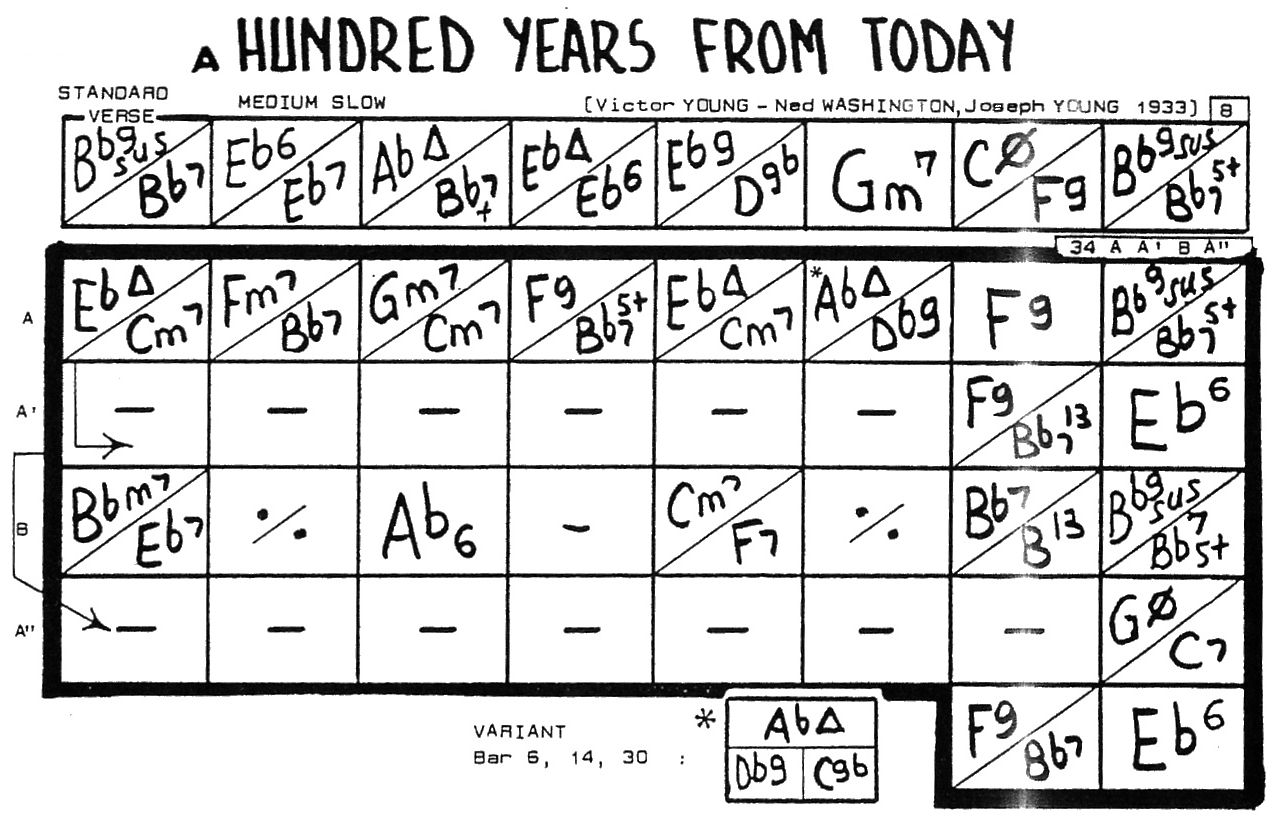 A HUNDRED YEARS FROM TODAY
STANDARD
MEDIUM SLOW [Victor YOUNG - Ned WASHINGTON, Joseph YOUNG 1933] 8
VERSE
Bb9sus Bb7 Eb6 Eb7 AbΔ Bb7+ EbΔ Eb6 Eb9 D9b Gm7 CØ F9 Bb9sus Bb75+
34 A A' B A"
A EbΔ Cm7 Fm7 Bb7 Gm7 Cm7 F9 Bb75+ EbΔ Cm7 *AbΔ Db9 F9 Bb9sus Bb75+
A' — — — — — — F9 Bb713 Eb6
B Bbm7 Eb7 ٪ Ab6 — Cm7 F7 ٪ Bb7 B13 Bb9sus Bb75+
A" — — — — — — — GØ C7
F9 Bb7 Eb6
VARIANT * AbΔ
Bar 6, 14, 30 : Db9 C9b